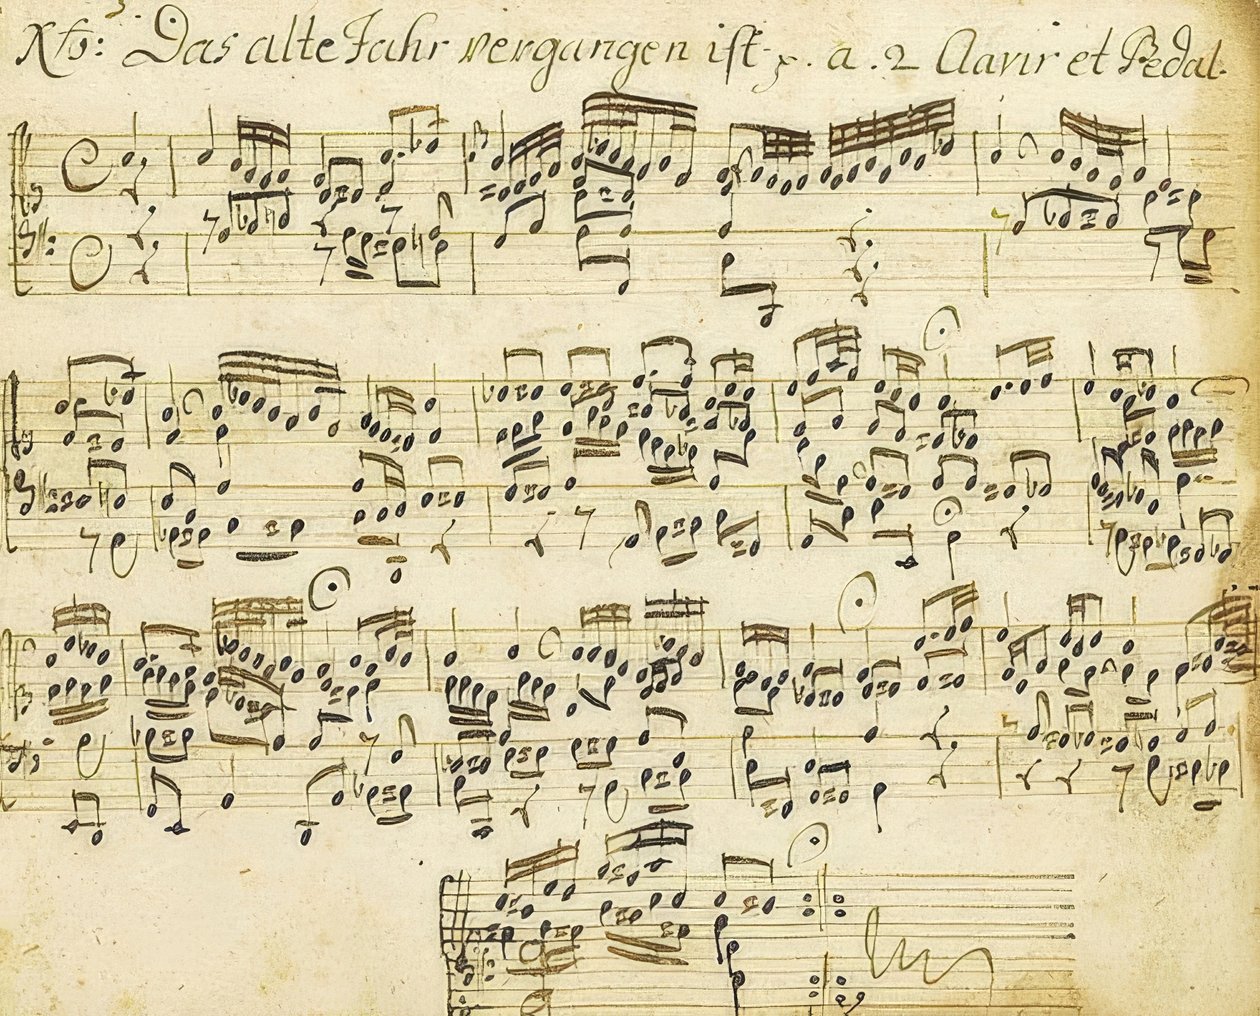 Das alte Jahr vergangen ist. a. 2 Clavir et Pedal.